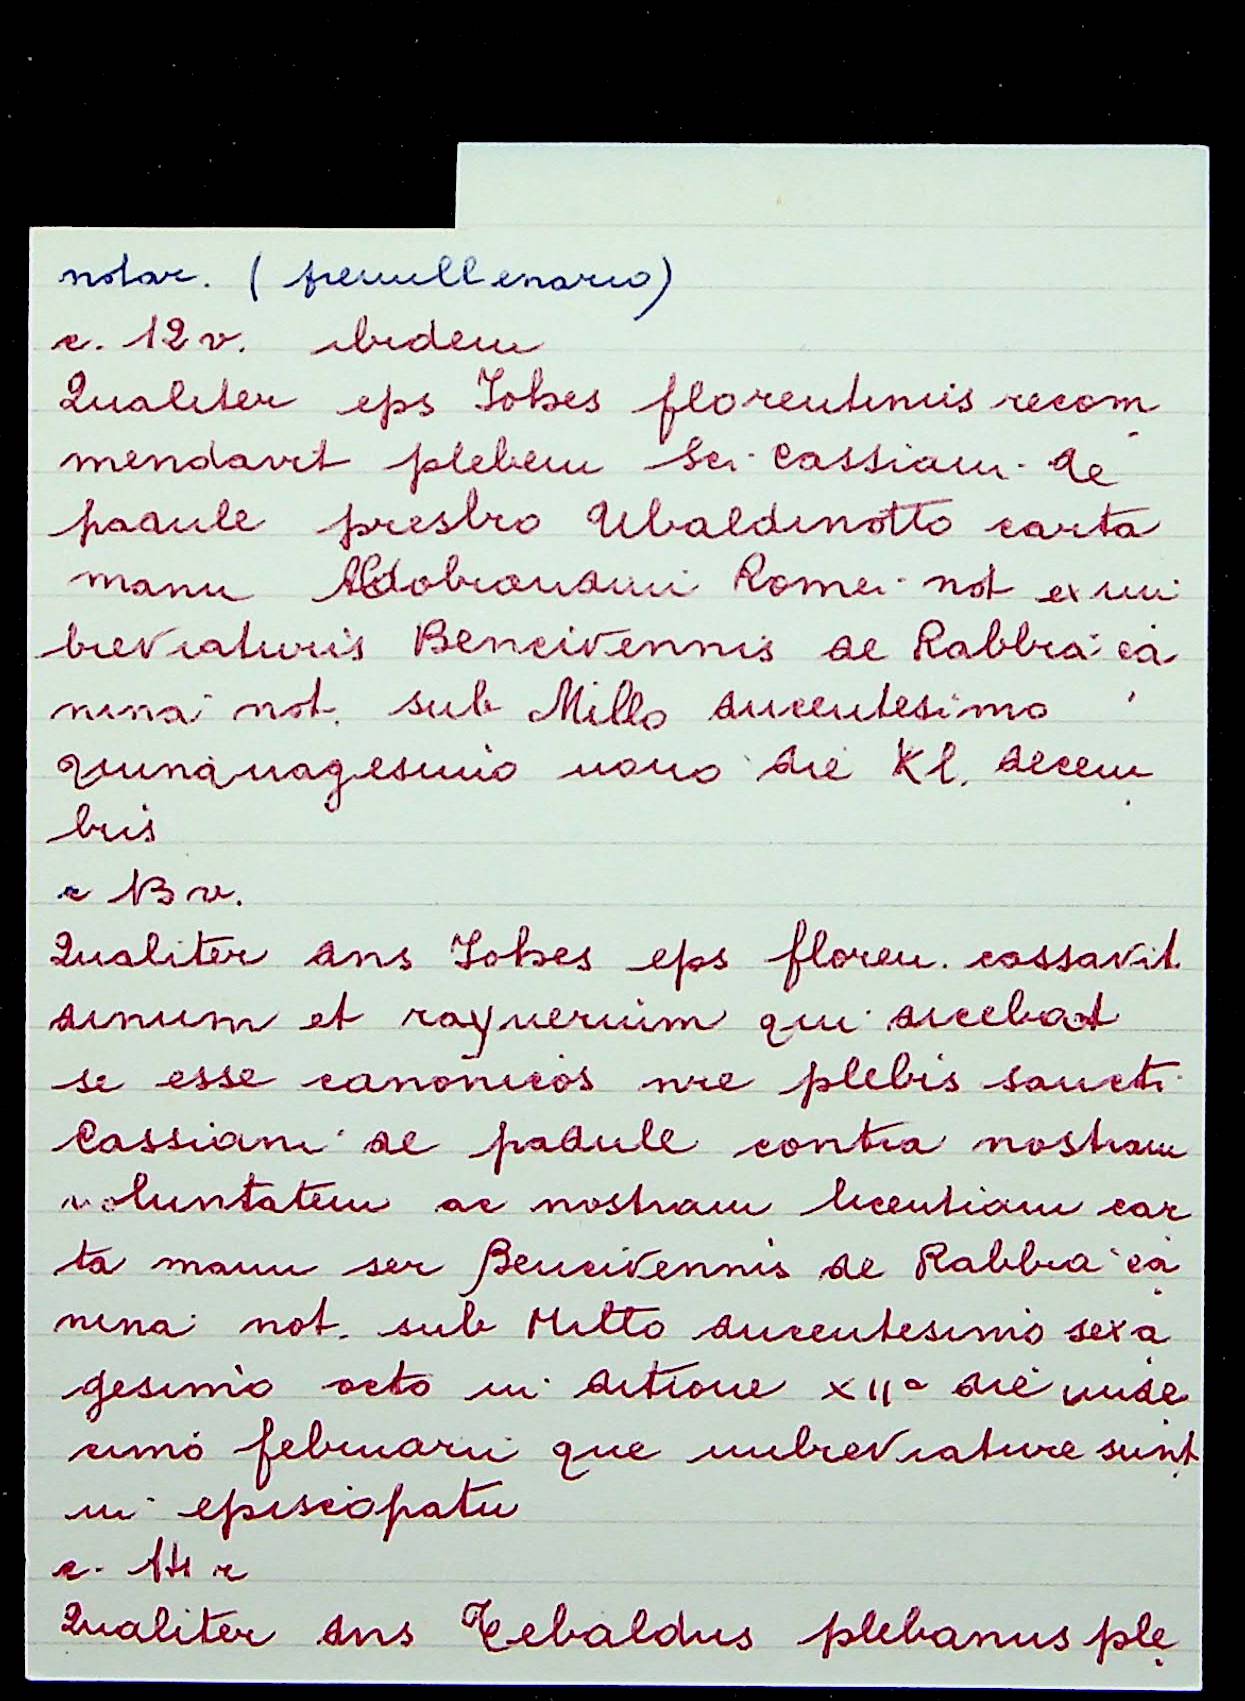 notar. (fiemillenario)
c. 12 v. ibidem
Qualiter eps Johes florentinus recom
mendavit plebem Sci Cassiani de
padule presbro Ubaldinotto carta
manu Aldobrandini Romei not ex im
breviaturis Bencivennis de Rabbia ca
nina not. sub Millo ducentesimo
quinquagesimo nono die Kl. decem
bris
c 13 v.
Qualiter dns Johes eps floren. cassavit
dinum et raynerium qui dicebat
se esse canonicos nre plebis sancti
Cassiani de padule contra nostram
voluntatem ac nostram licentiam car
ta manu ser Bencivennis de Rabbia ca
nina not. sub Millo ducentesimo sexa
gesimo octo in ditione XIIa die unde
cimo februarii que imbreviature sunt
in episcopatu
c. 14 r
Qualiter dns Tebaldus plebanus ple